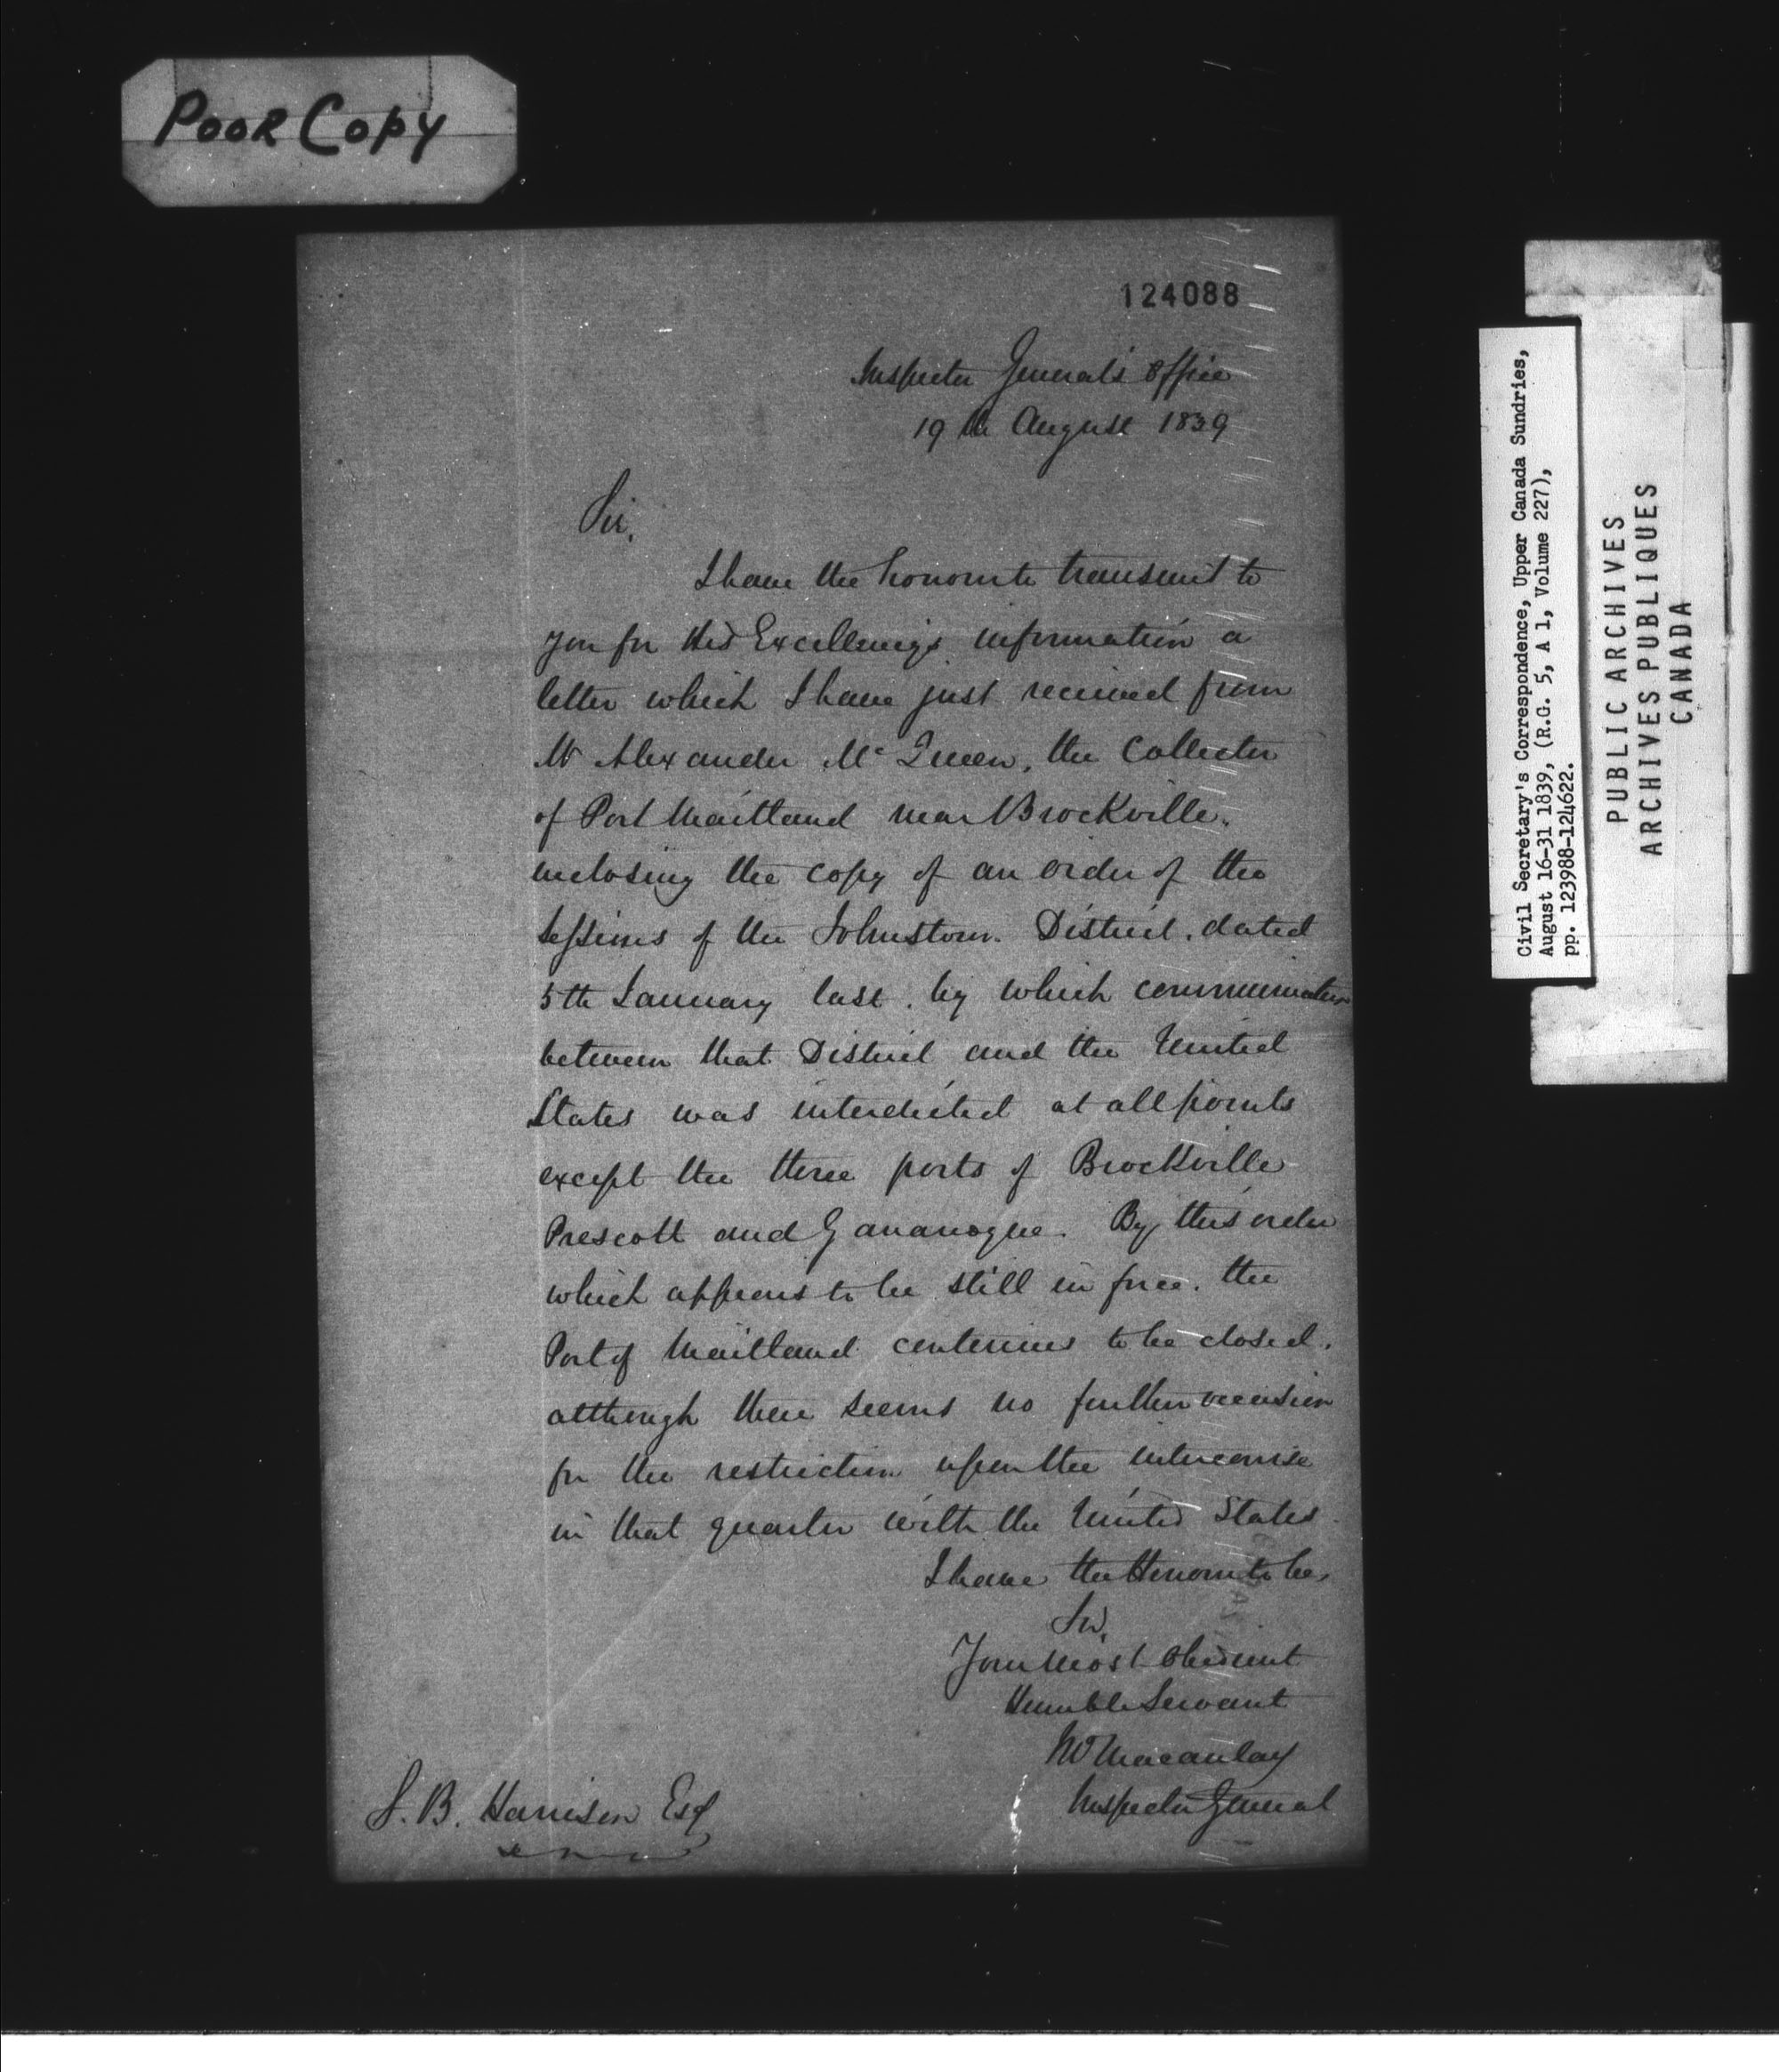 Poor Copy
124088
Inspector General's Office
19th August 1839
Sir,
I have the honor to transmit to
you for His Excellency's information a
letter which I have just received from
Mr Alexander McQueen, the Collector
of Port Maitland near Brockville,
inclosing the copy of an order of the
Sessions of the Johnstown District, dated
5th January last, by which communication
between that District and the United
States was interdicted at all points
except the three ports of Brockville
Prescott and Gananoque. By this order
which appears to be still in force, the
Port of Maitland continues to be closed,
although there seems no further occasion
for the restriction upon the intercourse
in that quarter with the United States.
I have the Honor to be,
Sir,
Your most Obedient
Humble Servant
Macaulay
Inspector General
S. B. Harrison Esq
Civil Secretary's Correspondence, Upper Canada Sundries,
August 16-31 1839, (R.G. 5, A 1, Volume 227),
pp. 123988-124622.
PUBLIC ARCHIVES
ARCHIVES PUBLIQUES
CANADA